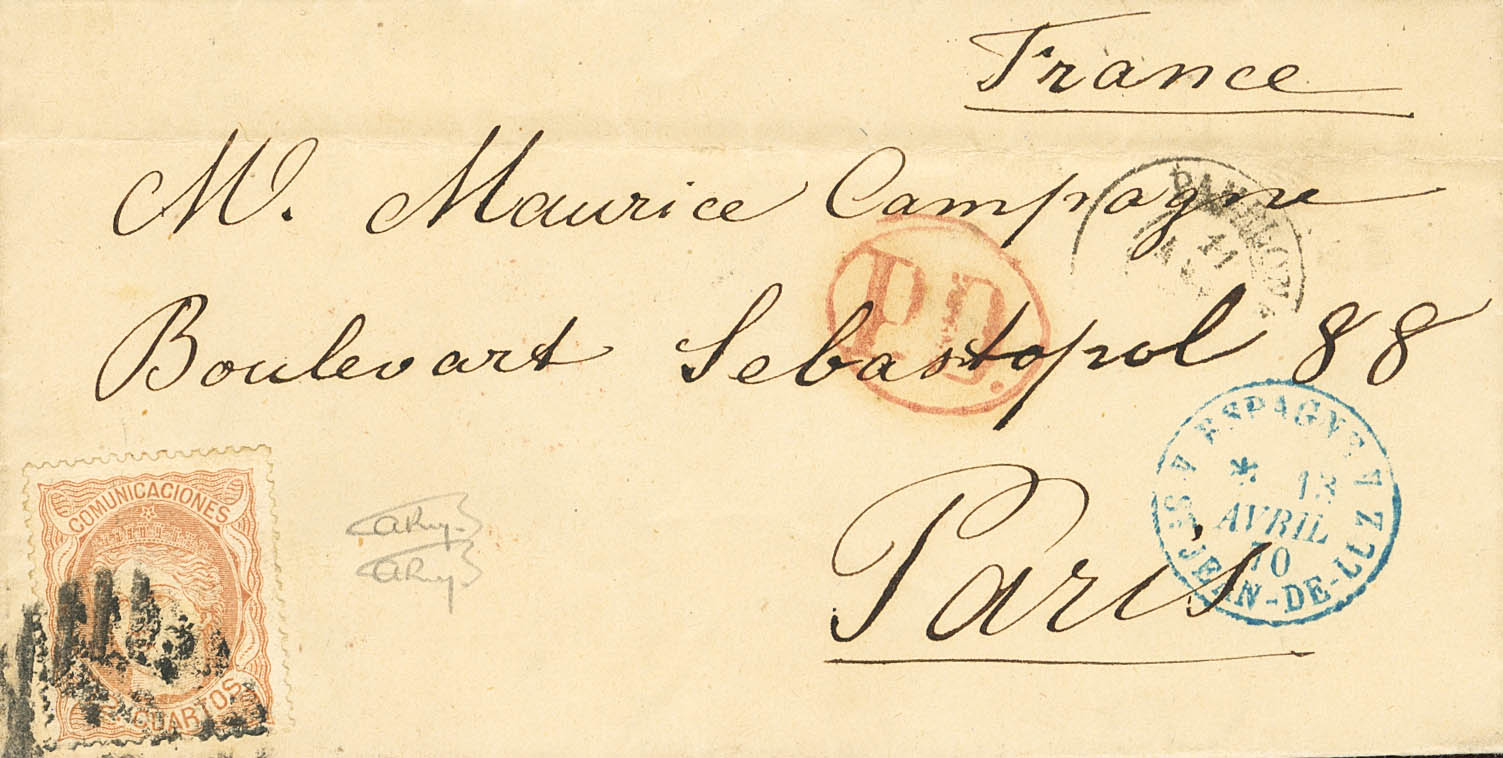 France
Mr. Maurice Campagne
Boulevart Sebastopol 88
Paris
P.D.
11
ESPAGNE
* 13
AVRIL
70
ST JEAN-DE-LUZ
COMUNICACIONES
CUARTOS